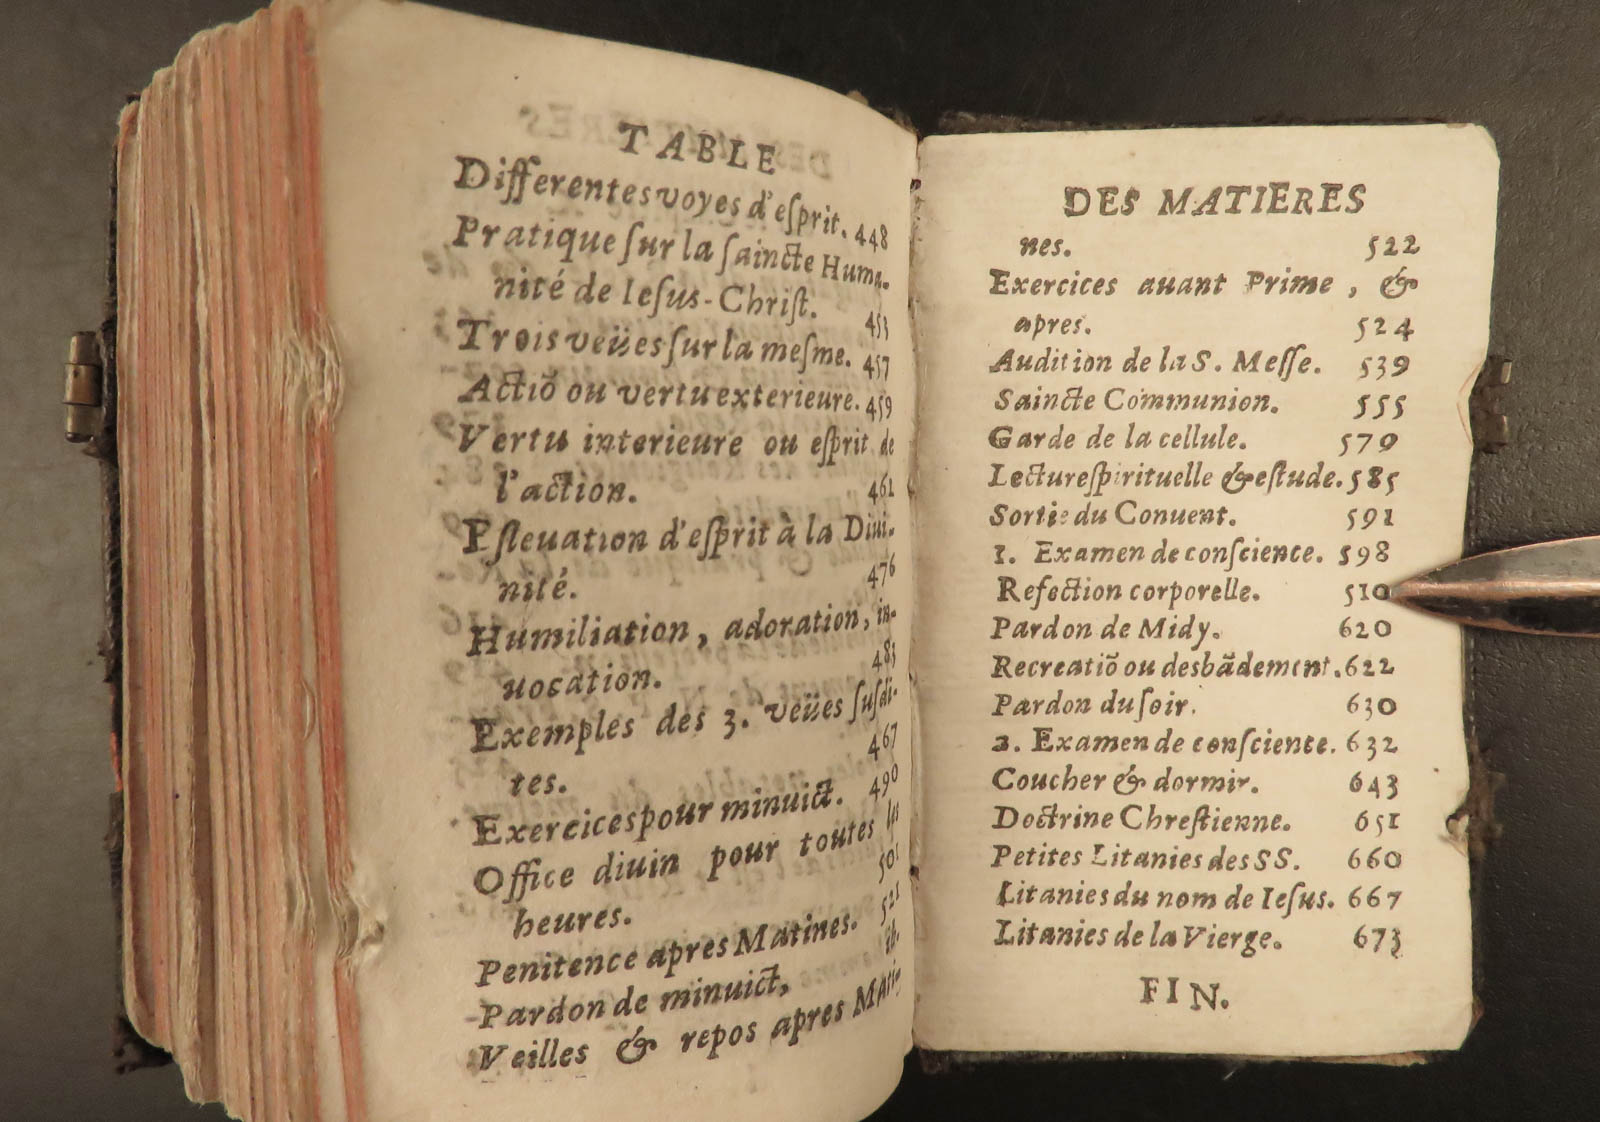 TABLE
Differentes voyes d'eſprit. 448
Pratique ſur la ſaincte Huma-
nité de Ieſus-Chriſt. 453
Trois veües ſur la meſme. 457
Actiõ ou vertu exterieure. 459
Vertu interieure ou eſprit de
l'action. 461
Eſleuation d'eſprit à la Diui-
nité. 476
Humiliation, adoration, in-
uocation. 483
Exemples des 3. veües ſuſdi-
tes. 467
Exercices pour minuict. 490
Office diuin pour toutes les
heures. 501
Penitence apres Matines. 521
Pardon de minuict, ib.
Veilles & repos apres Mati-
DES MATIERES
nes. 522
Exercices auant Prime, &
apres. 524
Audition de la S. Meſſe. 539
Saincte Communion. 555
Garde de la cellule. 579
Lecture ſpirituelle & eſtude. 585
Sortie du Conuent. 591
1. Examen de conſcience. 598
Refection corporelle. 510
Pardon de Midy. 620
Recreatiõ ou desbãdement. 622
Pardon du ſoir. 630
2. Examen de conſcience. 632
Coucher & dormir. 643
Doctrine Chreſtienne. 651
Petites Litanies des SS. 660
Litanies du nom de Ieſus. 667
Litanies de la Vierge. 673
FIN.